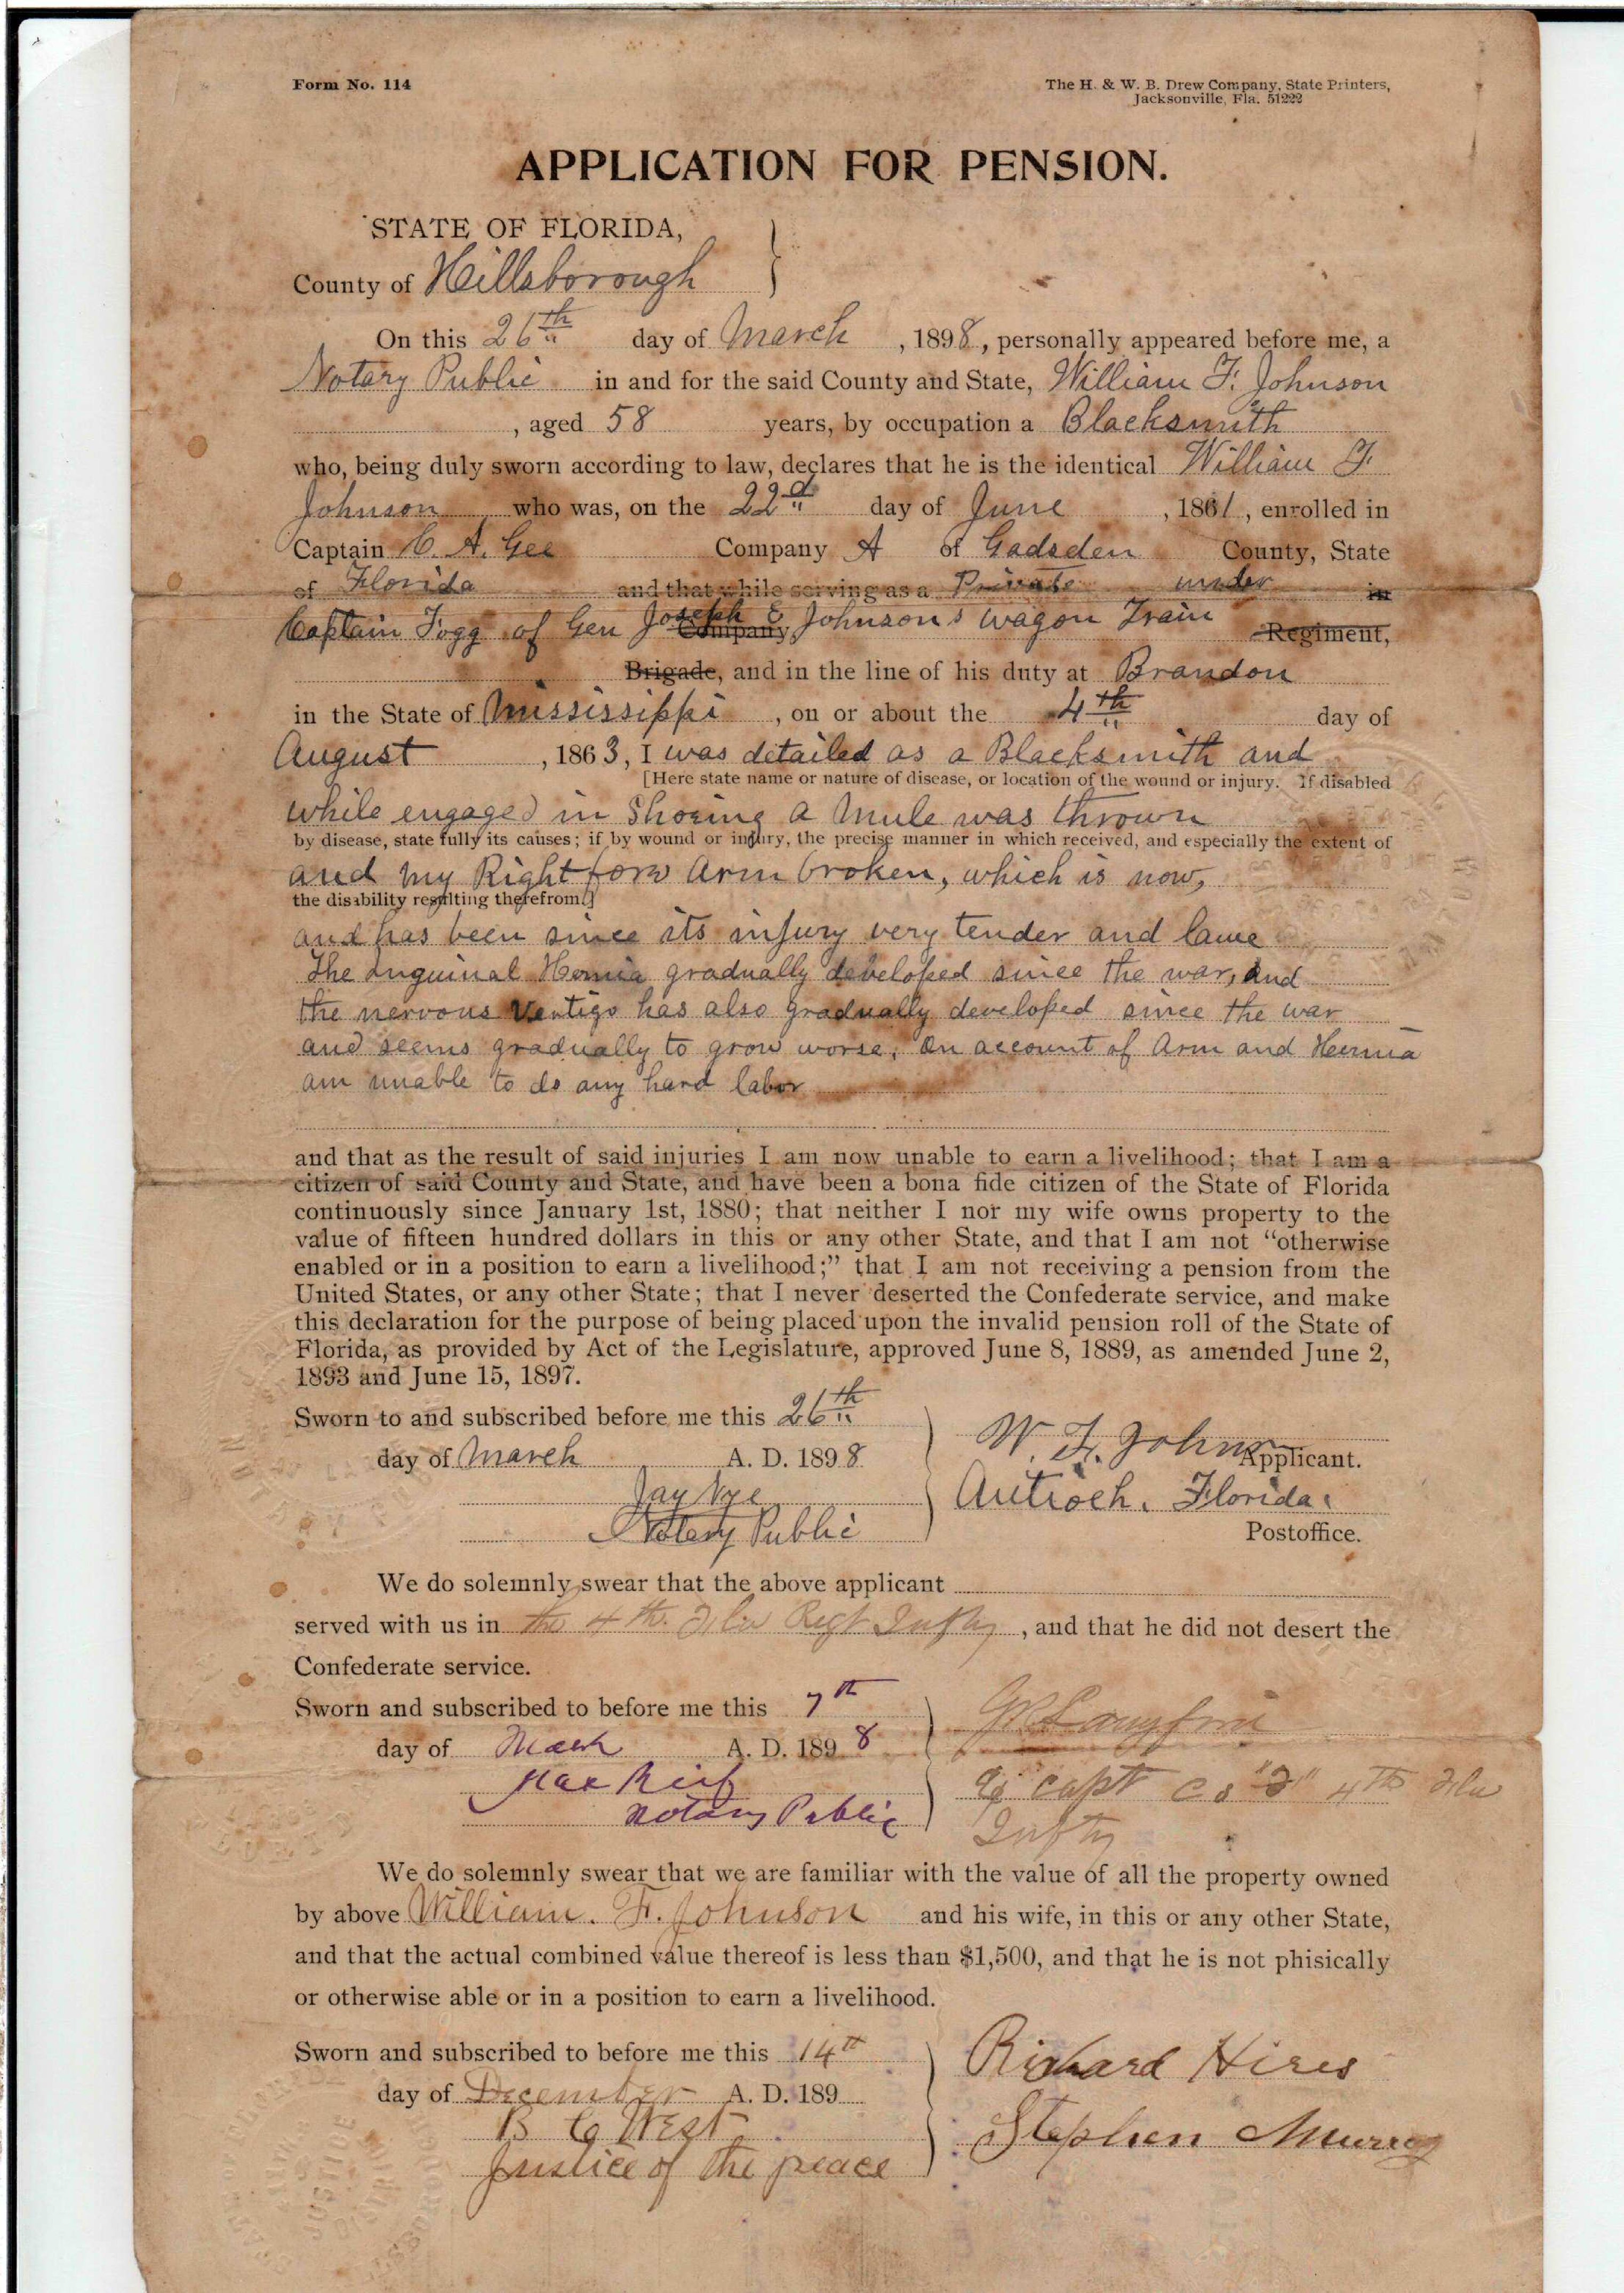 Form No. 114
The H. & W. B. Drew Company, State Printers,
Jacksonville, Fla. 51222
APPLICATION FOR PENSION.
STATE OF FLORIDA,
County of Hillsborough
On this 26th day of March, 1898, personally appeared before me, a
Notary Public in and for the said County and State, William F. Johnson
, aged 58 years, by occupation a Blacksmith
who, being duly sworn according to law, declares that he is the identical William F.
Johnson who was, on the 22d day of June, 1861, enrolled in
Captain C. A. Gee Company A of Gadsden County, State
of Florida and that while serving as a Private under in
Captain Fogg of Gen Joseph E Johnson's wagon Train Company, Regiment,
Brigade, and in the line of his duty at Brandon
in the State of Mississippi, on or about the 4th day of
August, 1863, I was detailed as a Blacksmith and
[Here state name or nature of disease, or location of the wound or injury. If disabled
while engaged in Shoeing a Mule was thrown
by disease, state fully its causes; if by wound or injury, the precise manner in which received, and especially the extent of
and my Right fore Arm broken, which is now,
the disability resulting therefrom.]
and has been since its injury very tender and lame
The Inguinal Hernia gradually developed since the war, and
the nervous Vertigo has also gradually developed since the war
and seems gradually to grow worse, On account of Arm and Hernia
am unable to do any hard labor
and that as the result of said injuries I am now unable to earn a livelihood; that I am a
citizen of said County and State, and have been a bona fide citizen of the State of Florida
continuously since January 1st, 1880; that neither I nor my wife owns property to the
value of fifteen hundred dollars in this or any other State, and that I am not “otherwise
enabled or in a position to earn a livelihood;” that I am not receiving a pension from the
United States, or any other State; that I never deserted the Confederate service, and make
this declaration for the purpose of being placed upon the invalid pension roll of the State of
Florida, as provided by Act of the Legislature, approved June 8, 1889, as amended June 2,
1893 and June 15, 1897.
Sworn to and subscribed before me this 26th
day of March A. D. 1898
Jay Nye
Notary Public
W. F. Johnson
Applicant.
Antioch, Florida.
Postoffice.
We do solemnly swear that the above applicant
served with us in the 4th Fla Regt Infty, and that he did not desert the
Confederate service.
Sworn and subscribed to before me this 7th
day of March A. D. 1898
Notary Public
Capt Co 4th Fla
Infty
We do solemnly swear that we are familiar with the value of all the property owned
by above William. F. Johnson and his wife, in this or any other State,
and that the actual combined value thereof is less than $1,500, and that he is not phisically
or otherwise able or in a position to earn a livelihood.
Sworn and subscribed to before me this 14th
day of December A. D. 189
B C West
Justice of the peace
Richard Hires
Stephen Murray